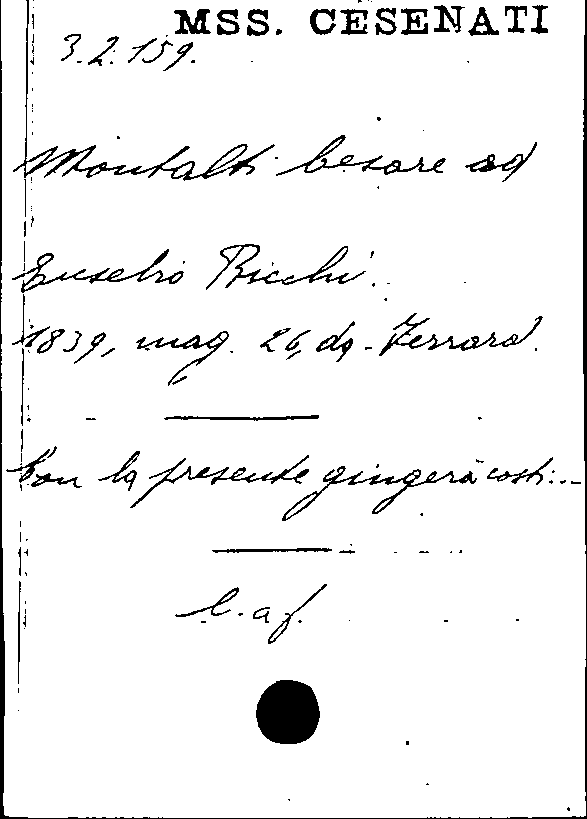 MSS. CESENATI
3.2.159.
Montalti Cesare ad
Eusebio Bicchi.
1839, mag. 26, da Ferrara.
Con la presente giugerà costì...
l. a f.